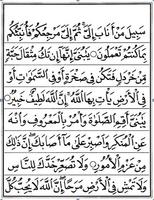 سَبِيلَ مَنْ أَنَابَ إِلَيَّ ثُمَّ إِلَيَّ مَرْجِعُكُمْ فَأُنَبِّئُكُمْ
بِمَا كُنْتُمْ تَعْمَلُونَ يَٰبُنَيَّ إِنَّهَا إِنْ تَكُ مِثْقَالَ حَبَّةٍ
مِنْ خَرْدَلٍ فَتَكُنْ فِي صَخْرَةٍ أَوْ فِي السَّمَٰوَٰتِ أَوْ
فِي الْأَرْضِ يَأْتِ بِهَا اللَّهُ إِنَّ اللَّهَ لَطِيفٌ خَبِيرٌ
يَٰبُنَيَّ أَقِمِ الصَّلَوٰةَ وَأْمُرْ بِالْمَعْرُوفِ وَانْهَ
عَنِ الْمُنْكَرِ وَاصْبِرْ عَلَىٰ مَا أَصَابَكَ إِنَّ ذَٰلِكَ
مِنْ عَزْمِ الْأُمُورِ وَلَا تُصَعِّرْ خَدَّكَ لِلنَّاسِ
وَلَا تَمْشِ فِي الْأَرْضِ مَرَحًا إِنَّ اللَّهَ لَا يُحِبُّ كُلَّ